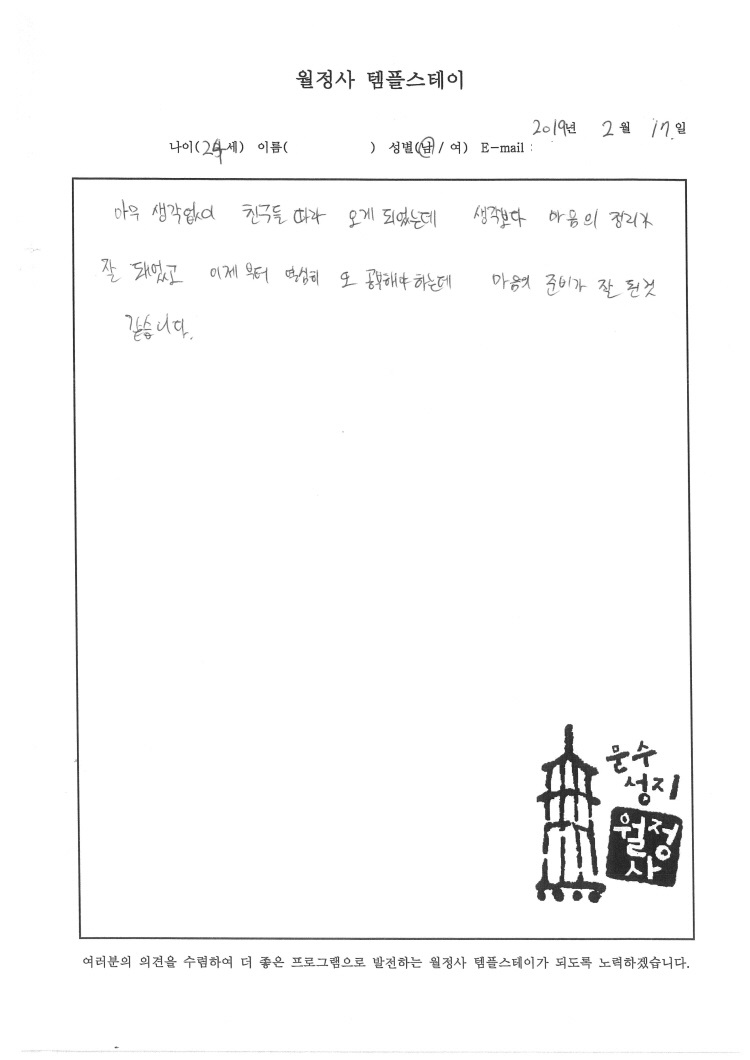 월정사 템플스테이
2019년 2월 17.일
나이(24세) 이름( ) 성별(남 / 여) E-mail :
아무 생각없이 친구들 따라 오게 되었는데 생각보다 마음의 정리가
잘 돼었고 이제부터 열심히 또 공부해야 하는데 마음의 준비가 잘 된것
같습니다.
문수
성지
월정
사
여러분의 의견을 수렴하여 더 좋은 프로그램으로 발전하는 월정사 템플스테이가 되도록 노력하겠습니다.